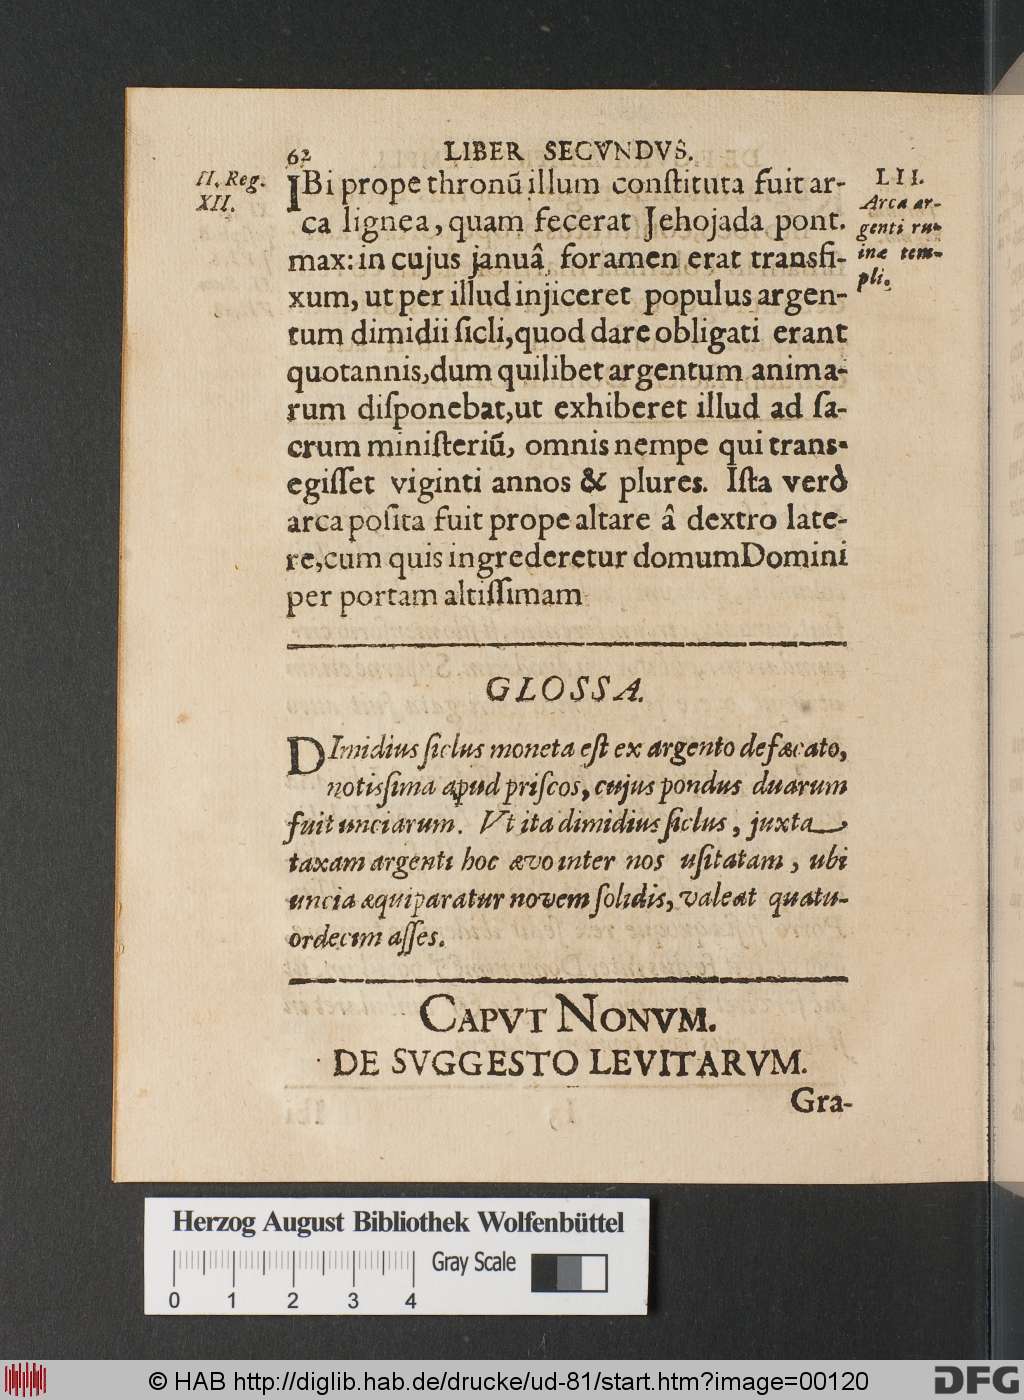 62 LIBER SECVNDVS.
II. Reg.
XII.
IBi prope thronũ illum conſtituta fuit ar-
ca lignea, quam fecerat Jehojada pont.
max: in cujus januâ foramen erat transfi-
xum, ut per illud injiceret populus argen-
tum dimidii ſicli, quod dare obligati erant
quotannis, dum quilibet argentum anima-
rum diſponebat, ut exhiberet illud ad ſa-
crum miniſteriũ, omnis nempe qui trans-
egiſſet viginti annos & plures. Iſta verò
arca poſita fuit prope altare â dextro late-
re, cum quis ingrederetur domum Domini
per portam altiſſimam
LII.
Arca ar-
genti ru-
inæ tem-
pli.
GLOSSA.
DImidius ſiclus moneta eſt ex argento defæcato,
notisſima apud priſcos, cujus pondus duarum
fuit unciarum. Vt ita dimidius ſiclus, juxta
taxam argenti hoc ævo inter nos uſitatam, ubi
uncia æquiparatur novem ſolidis, valeat quatu-
ordecim aſſes.
CAPVT NONVM.
DE SVGGESTO LEVITARVM.
Gra-
Herzog August Bibliothek Wolfenbüttel
Gray Scale
0 1 2 3 4
© HAB http://diglib.hab.de/drucke/ud-81/start.htm?image=00120
DFG